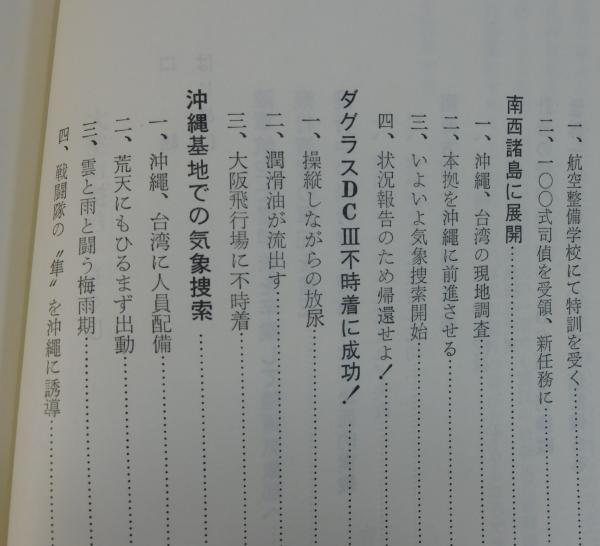 一、航空整備学校にて特訓を受く
二、一〇〇式司偵を受領、新任務に
南西諸島に展開
一、沖縄、台湾の現地調査
二、本拠を沖縄に前進させる
三、いよいよ気象捜索開始
四、状況報告のため帰還せよ！
ダグラスDCⅢ不時着に成功！
一、操縦しながらの放尿
二、潤滑油が流出す
三、大阪飛行場に不時着
沖縄基地での気象捜索
一、沖縄、台湾に人員配備
二、荒天にもひるまず出動
三、雲と雨と闘う梅雨期
四、戦闘隊の〝隼〟を沖縄に誘導